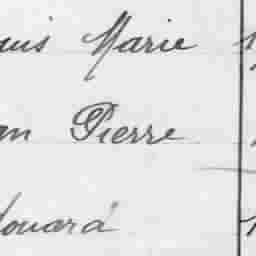 uis Marie
an Pierre
douard